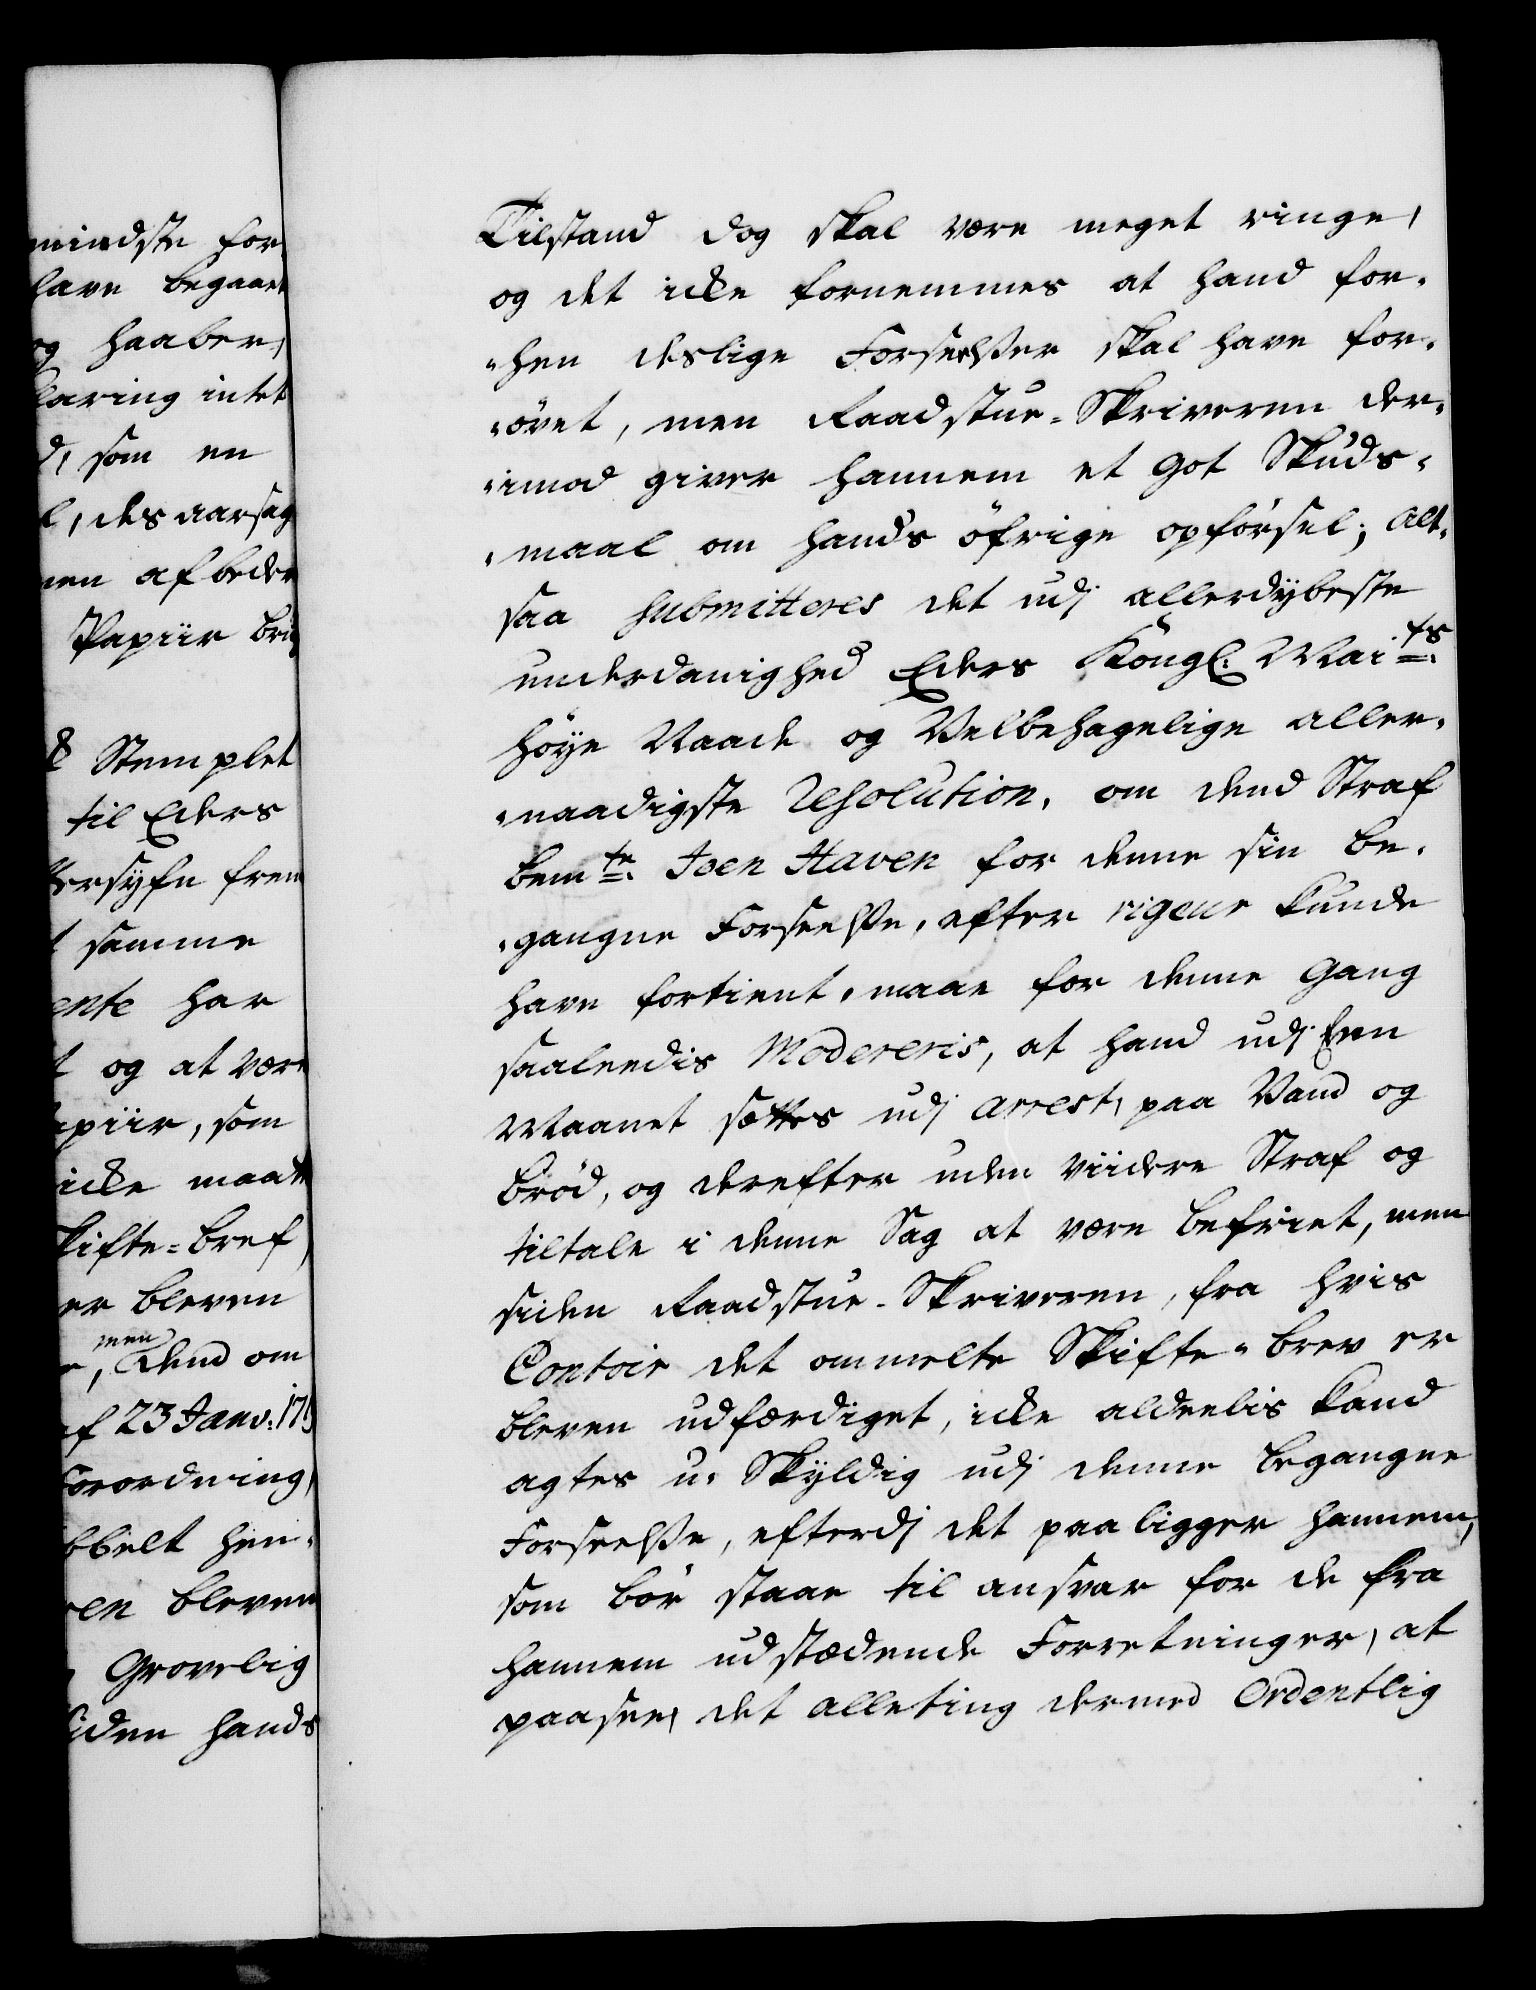 mindste for¬
have begaaet
og haaber,
klaring intet
d, som en
l, des aarsag
men afbeder
Papiir brug
8 Stemplet
til Eders
Eftersyfn frem
t samme
ente har
t og at være
apiir, som
icke maatte
Skifte=bref,
er bleven
men
e, dend om
af 23 Janv: 171
Forordning,
obbelt hen¬
ren bleven
Grovelig
siden hands
Tilstand dog skal være meget ringe,
og det icke fornemmes at hand for¬
¬hen deslige Forseelsser skal have for¬
¬övet, men Raadstue-Skriveren der¬
¬imod giver hannem et got Skuds¬
¬maal om hands öfrige opförsel; Alt¬
saa submitteres det udj allerdybeste
underdanighed Eders Kongl: Mai:ts
höye Naade og Velbehagelige aller¬
¬naadigste Resolution, om dend Straf
bem:te Joen Haven for denne sin be¬
¬gangne Forseelsse, efter rigeur kunde
have fortient, maae for denne Gang
saaleedis Modereris, at hand udj Een
Maanet sættes udj Arrest, paa Vand og
bröd, og derefter uden viidere Straf og
tiltale i denne Sag at være befriet, men
siden Raadstue-Skriveren, fra hvis
Contoir det ommelte Skifte-brev er
bleven udfærdiget, icke aldeelis kand
agtes u-Skyldig udj denne begangne
Forseelsse, efterdj det paaligger hannem,
som bör staae til ansvar for de fra
hannem udstædende Forretninger, at
paasee, det alleting dermed Ordentlig